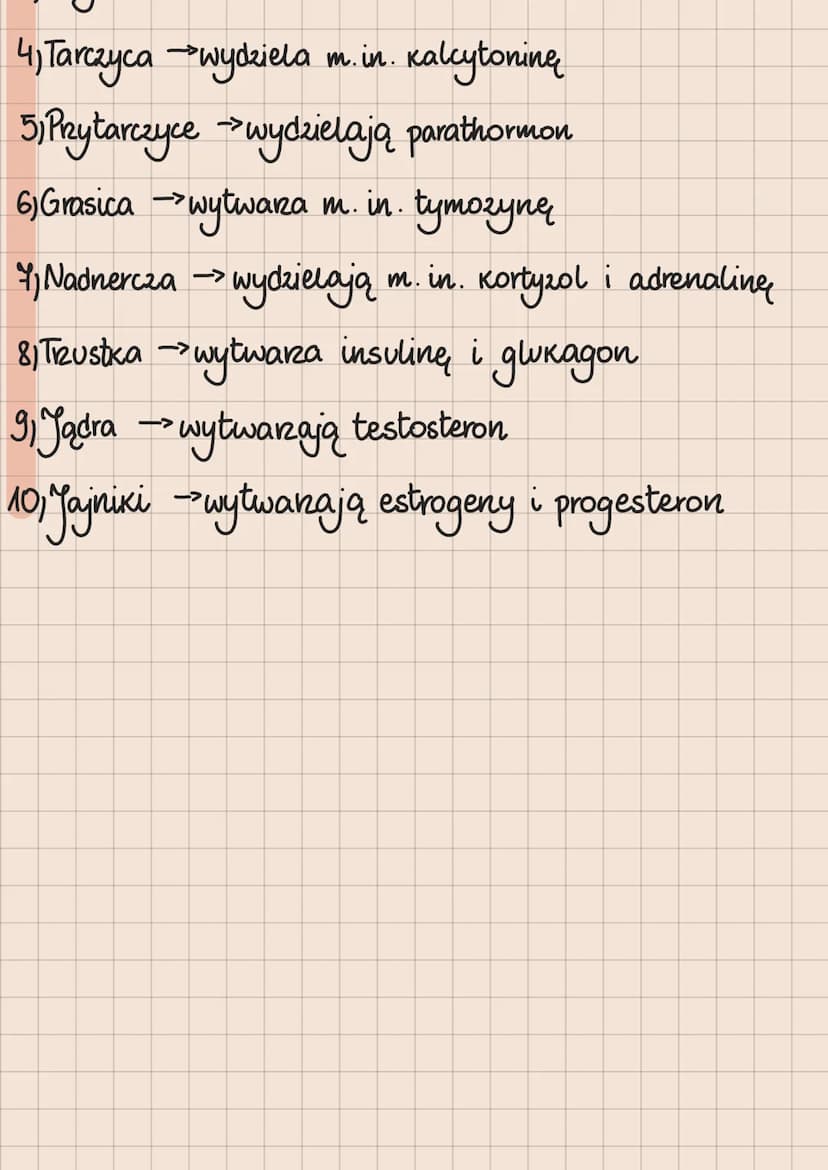 4) Tarczyca → wydziela m.in. kalcytoninę
5) Przytarczyce → wydzielają parathormon
6) Grasica → wytwarza m. in. tymozynę
7) Nadnercza → wydzielają m. in. kortyzol i adrenalinę
8) Trzustka → wytwarza insulinę i glukagon
9) Jądra → wytwarzają testosteron
10) Jajniki → wytwarzają estrogeny i progesteron